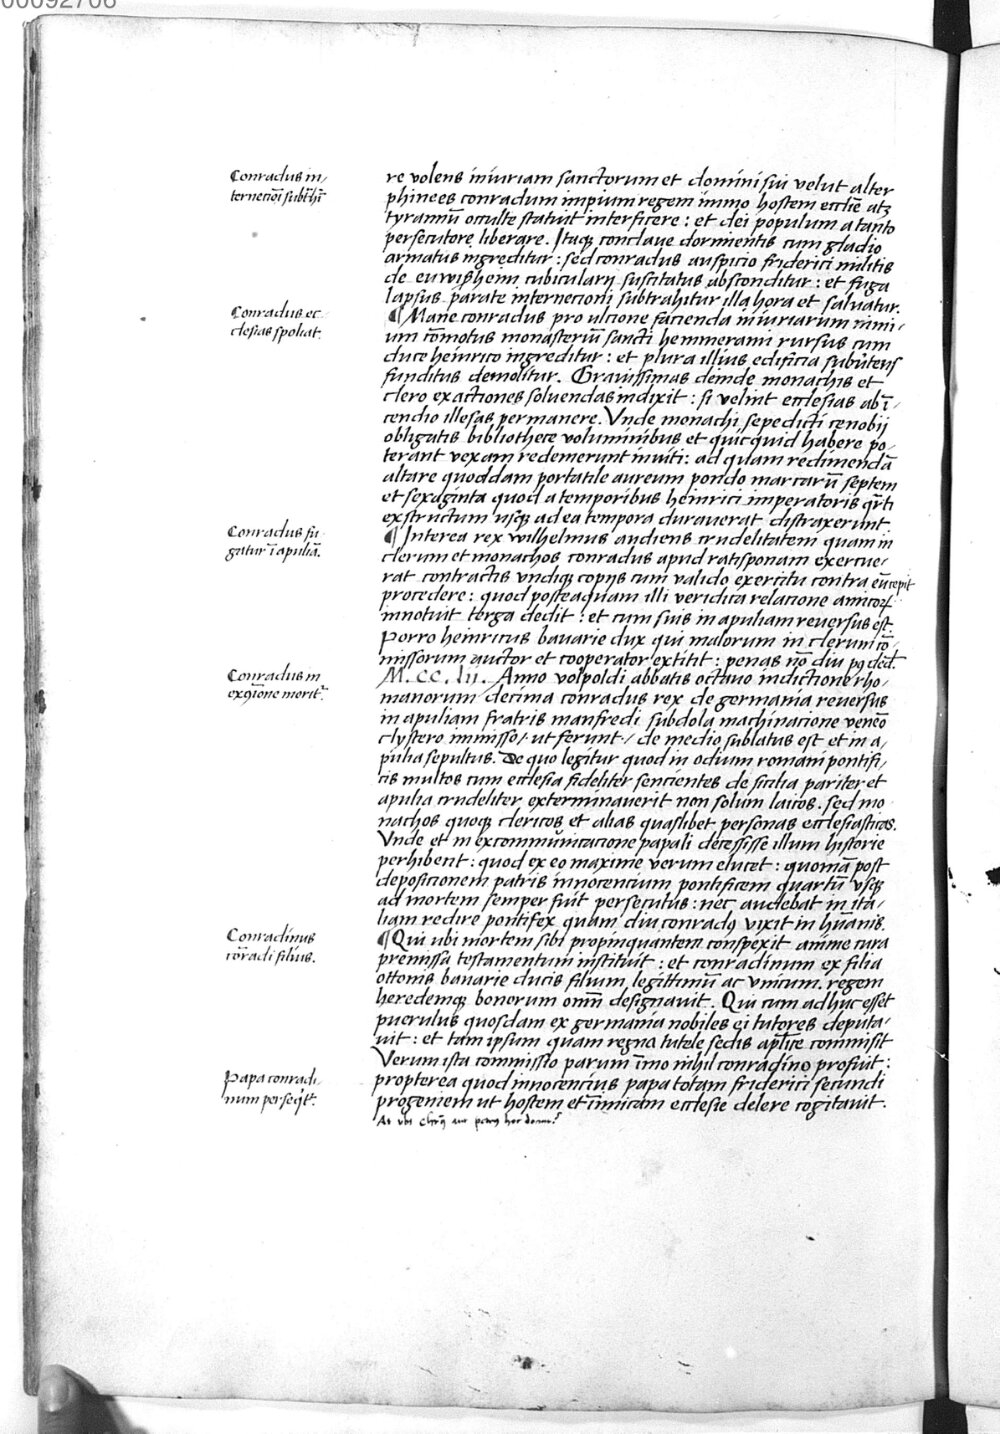 00092706
Conradus in/
ternecioī subt͛hit͛
re volens iniuriam sanctorum et domini sui velut alter
phinees conradum impium regem immo hostem eccl̄ie atꝫ
tyrannū occulte statuit interficere : et dei populum a tanto
persecutore liberare. Itaqꝫ conclave dormientis cum gladio
armatus ingreditur : sed conradus auspicio friderici militis
de euwißheim cubicularij suscitatus absconditur : et fuga
lapsus parate internecioni subtrahitur illa hora et salvatur.
Conradus ec-
clesias spoliat.
¶ Mane conradus pro ulcione facienda iniuriarum nimi/
um cōmotus monasteriū sancti hemmerami rursus cum
duce heinrico ingreditur : et plura illius edificia subv̄tens
funditus demolitur. Gravissimas deinde monachis et
clero exactiones solvendas indixit : si velint ecclesias ab ī/
cendio illesas permanere. Unde monachi sepedicti cenobij
obligatis bibliothece voluminibus et quicquid habere po-
terant vexam redemerunt inviti : ad quam redimendā
altare quoddam portatile aureum pondo marcarū septem
et sexaginta quod a temporibus heinrici imperatoris q̄rti
exstructum usqꝫ ad ea tempora duraverat distraxerunt.
Conradus fu-
gatur ī apuliā.
¶ Interea rex wilhelmus audiens crudelitatem quam in
clerum et monachos conradus apud ratisponam exercue-
rat contractis undiqꝫ copijs cum valido exercitu contra eū cepit
procedere : quod posteaquam illi veridica relacione amicoꝝ
innotuit terga dedit : et cum suis in apuliam reversus est.
Porro heinricus bavarie dux qui malorum in clerum cō-
missorum auctor et cooperator extitit : penas nō diu pꝰ ded͛.
Conradus in
exꝯione morit͛.
M.CC.lii. Anno volpoldi abbatis octavo indictione rho-
manorum decima conradus rex de germania reversus
in apuliam fratris manfredi subdola machinacione veneō
clystero immisso / ut ferunt / de medio sublatus est et in a/
pulia sepultus. De quo legitur quod in odium romani pontifi/
cis multos cum ecclesia fideliter sencientes de sicilia pariter et
apulia crudeliter exterminaverit non solum laicos. sed mo
nachos quoqꝫ clericos et alias quaslibet personas ecclesiasticas.
Unde et in excommūnicacione papali decessisse illum historie
perhibent : quod ex eo maxime verum elucet : quoniā post
deposicionem patris innocencium pontificem quartū usqꝫ
ad mortem semper fuit persecutus : nec audebat in ita/
liam redire pontifex quam diu conradꝰ vixit in hūanis.
Conradinus
cōradi filius.
¶ Qui ubi mortem sibi propinquantem conspexit anime cura
premissa testamentum instituit : et conradinum ex filia
ottonis bavarie ducis filium legittimū ac unicum. regem
heredemqꝫ bonorum omn̄ designavit. Qui cum adhuc esset
puerulus quosdam ex germania nobiles ei tutores deputa/
vit : et tam ipsum quam regna tutele sedis apl̄ice commisit
Verum ista commissio parum īmo nihil conradino profuit :
Papa conradi-
num perseq̄t͛.
propterea quod innocencius papa totam friderici secundi
progeniem ut hostem et inimicam ecclesie delere cogitavit.
At ubi